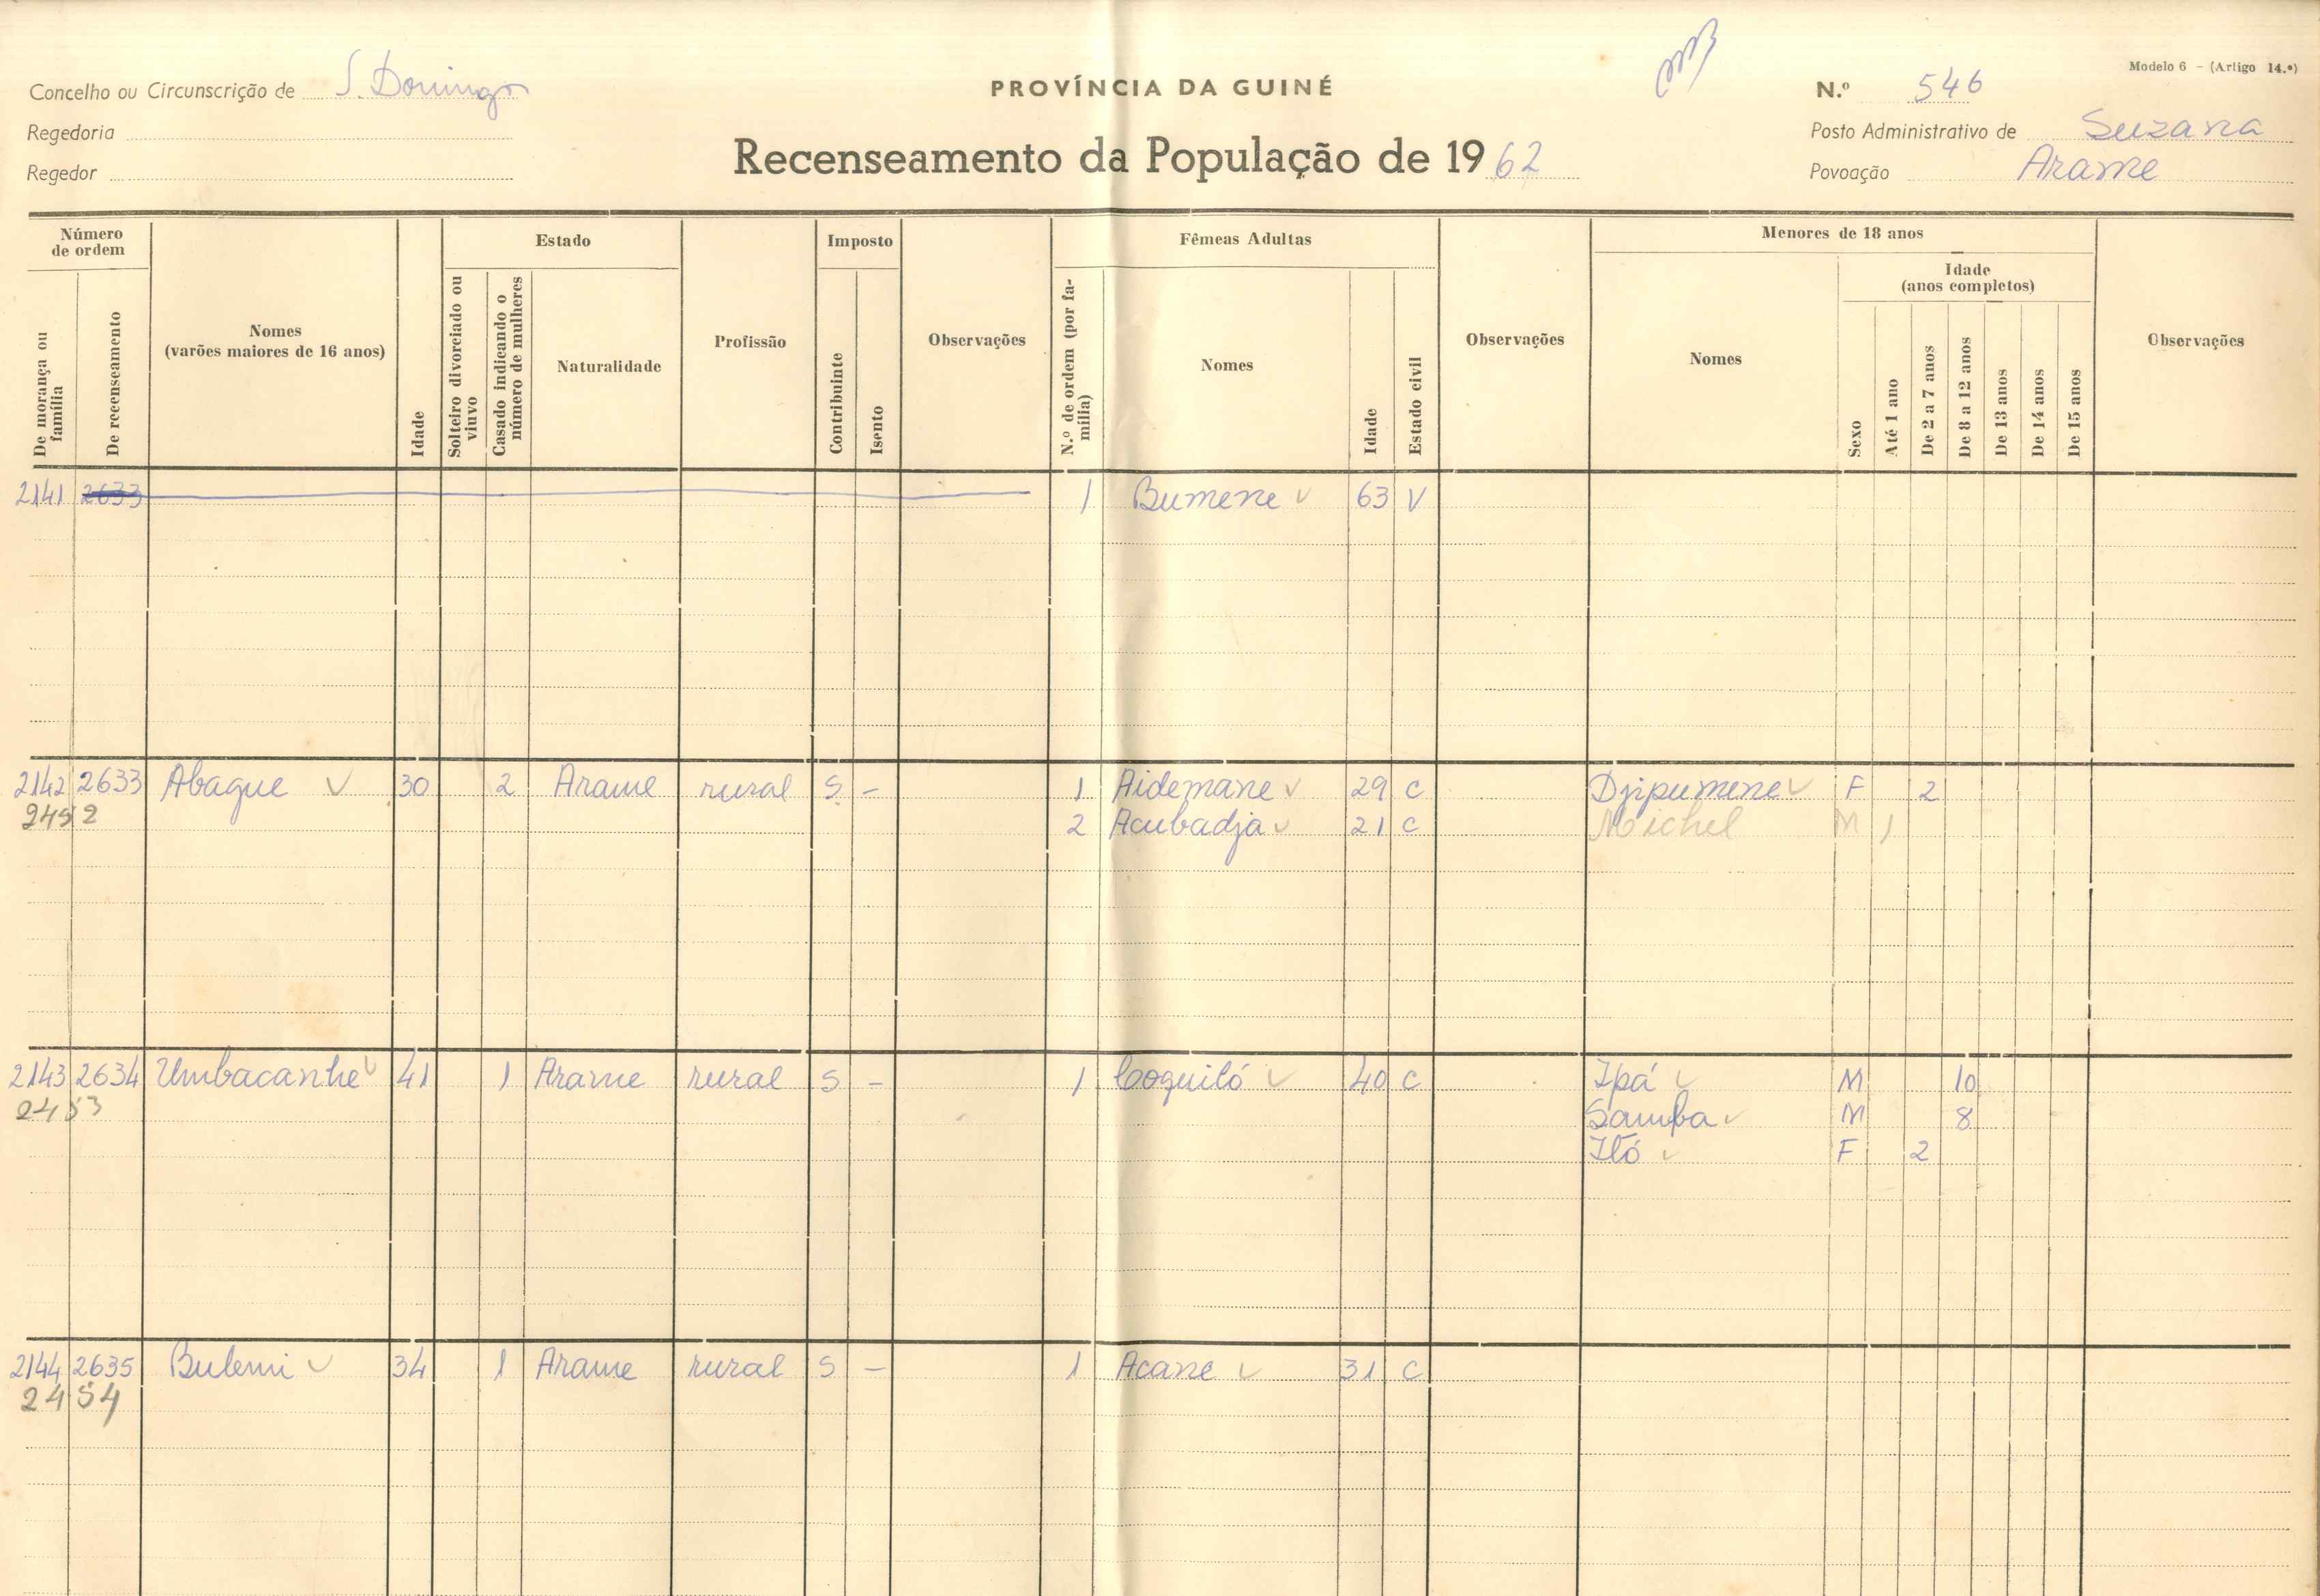 Modelo 6 - (Artigo 14.º)
Concelho ou Circunscrição de S. Domingos
PROVÍNCIA DA GUINÉ
N.º 546
Regedoria
Posto Administrativo de Suzana
Regedor
Recenseamento da População de 1962
Povoação Arame
Número de ordem
De morança ou família
De recenseamento
Nomes
(varões maiores de 16 anos)
Idade
Estado
Solteiro divorciado ou viuvo
Casado indicando o número de mulheres
Naturalidade
Profissão
Imposto
Contribuinte
Isento
Observações
Fêmeas Adultas
N.º de ordem (por família)
Nomes
Idade
Estado civil
Observações
Menores de 18 anos
Nomes
Idade
(anos completos)
Sexo
Até 1 ano
De 2 a 7 anos
De 8 a 12 anos
De 13 anos
De 14 anos
De 15 anos
Observações
2141 2633 1 Bumene 63 V
2142 2633 Abaque 30 2 Arame rural S - 1 Aidemane 29 C Djipumene F 2
2452 2 Acubadja 21 C Michel M 1
2143 2634 Umbacanhe 41 1 Arame rural S - 1 Coquiló 40 C Ipá M 10
2453 Samba M 8
Itó F 2
2144 2635 Bulemi 34 1 Arame rural S - 1 Acane 31 C
2454